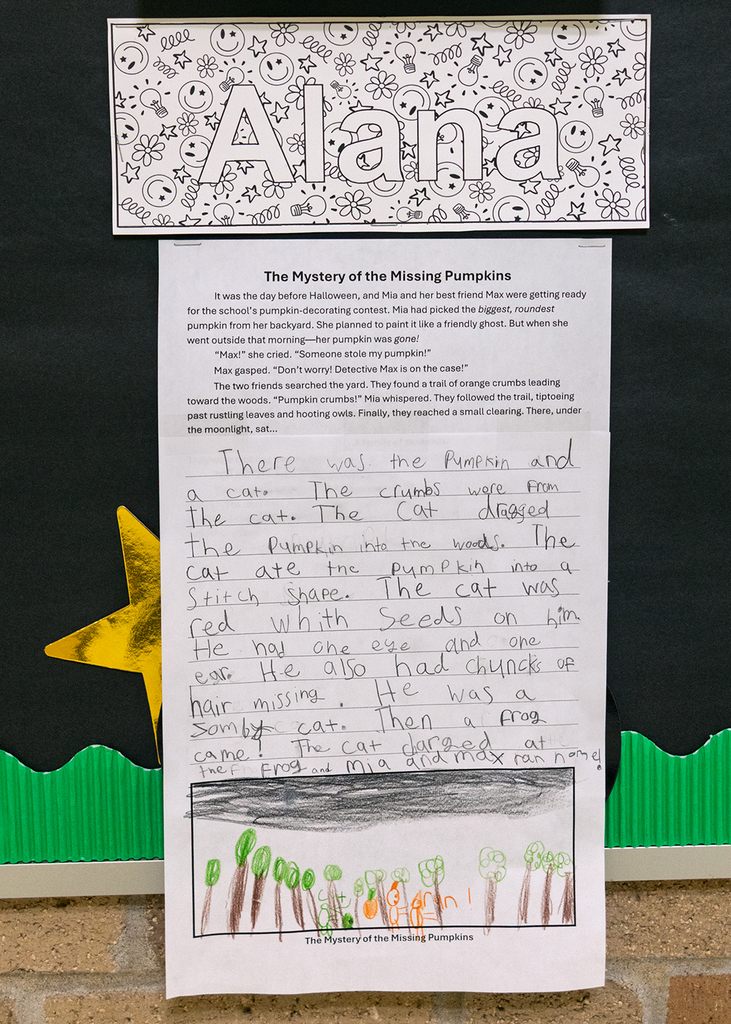 Alana
The Mystery of the Missing Pumpkins
It was the day before Halloween, and Mia and her best friend Max were getting ready
for the school's pumpkin-decorating contest. Mia had picked the biggest, roundest
pumpkin from her backyard. She planned to paint it like a friendly ghost. But when she
went outside that morning—her pumpkin was gone!
"Max!" she cried. "Someone stole my pumpkin!"
Max gasped. "Don't worry! Detective Max is on the case!"
The two friends searched the yard. They found a trail of orange crumbs leading
toward the woods. "Pumpkin crumbs!" Mia whispered. They followed the trail, tiptoeing
past rustling leaves and hooting owls. Finally, they reached a small clearing. There, under
the moonlight, sat...
There was the Pumpkin and
a cat. The crumbs were from
the cat. The Cat dragged
the Pumpkin into the woods. The
cat ate the pumpkin into a
Stitch shape. The cat was
red whith Seeds on him.
He had one eye and one
ear. He also had chuncks of
hair missing. He was a
somby cat. Then a frog
came! The cat darged at
the frog and mia and max ran home!
run!
The Mystery of the Missing Pumpkins